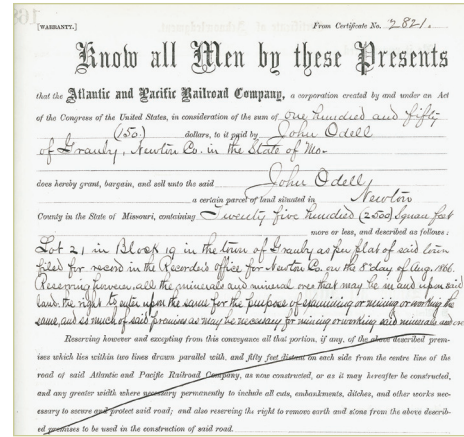 [WARRANTY.]
From Certificate No. 2821.
Know all Men by these Presents
that the Atlantic and Pacific Railroad Company, a corporation created by and under an Act
of the Congress of the United States, in consideration of the sum of One hundred and fifty
(150.) dollars, to it paid by John Odell
of Granby, Newton Co. in the State of Mo.
does hereby grant, bargain, and sell unto the said John Odell
a certain parcel of land situated in Newton
County in the State of Missouri, containing Twenty five hundred (2500) Square feet
more or less, and described as follows:
Lot 21 in Block 19 in the town of Granby as per plat of said town
filed for record in the Recorder's Office for Newton Co. on the 8" day of Aug. 1866.
Reserving however, all the minerals and mineral ore that may be in and upon said
land; the right to enter upon the same for the purpose of examining or mining or working the
same, and so much of said premises as may be necessary for mining or working said minerals and ore
Reserving however and excepting from this conveyance all that portion, if any, of the above described prem-
ises which lies within two lines drawn parallel with, and fifty feet distant on each side from the centre line of the
road of said Atlantic and Pacific Railroad Company, as now constructed, or as it may hereafter be constructed,
and any greater width where necessary permanently to include all cuts, embankments, ditches, and other works nec-
essary to secure and protect said road; and also reserving the right to remove earth and stone from the above describ-
ed premises to be used in the construction of said road.